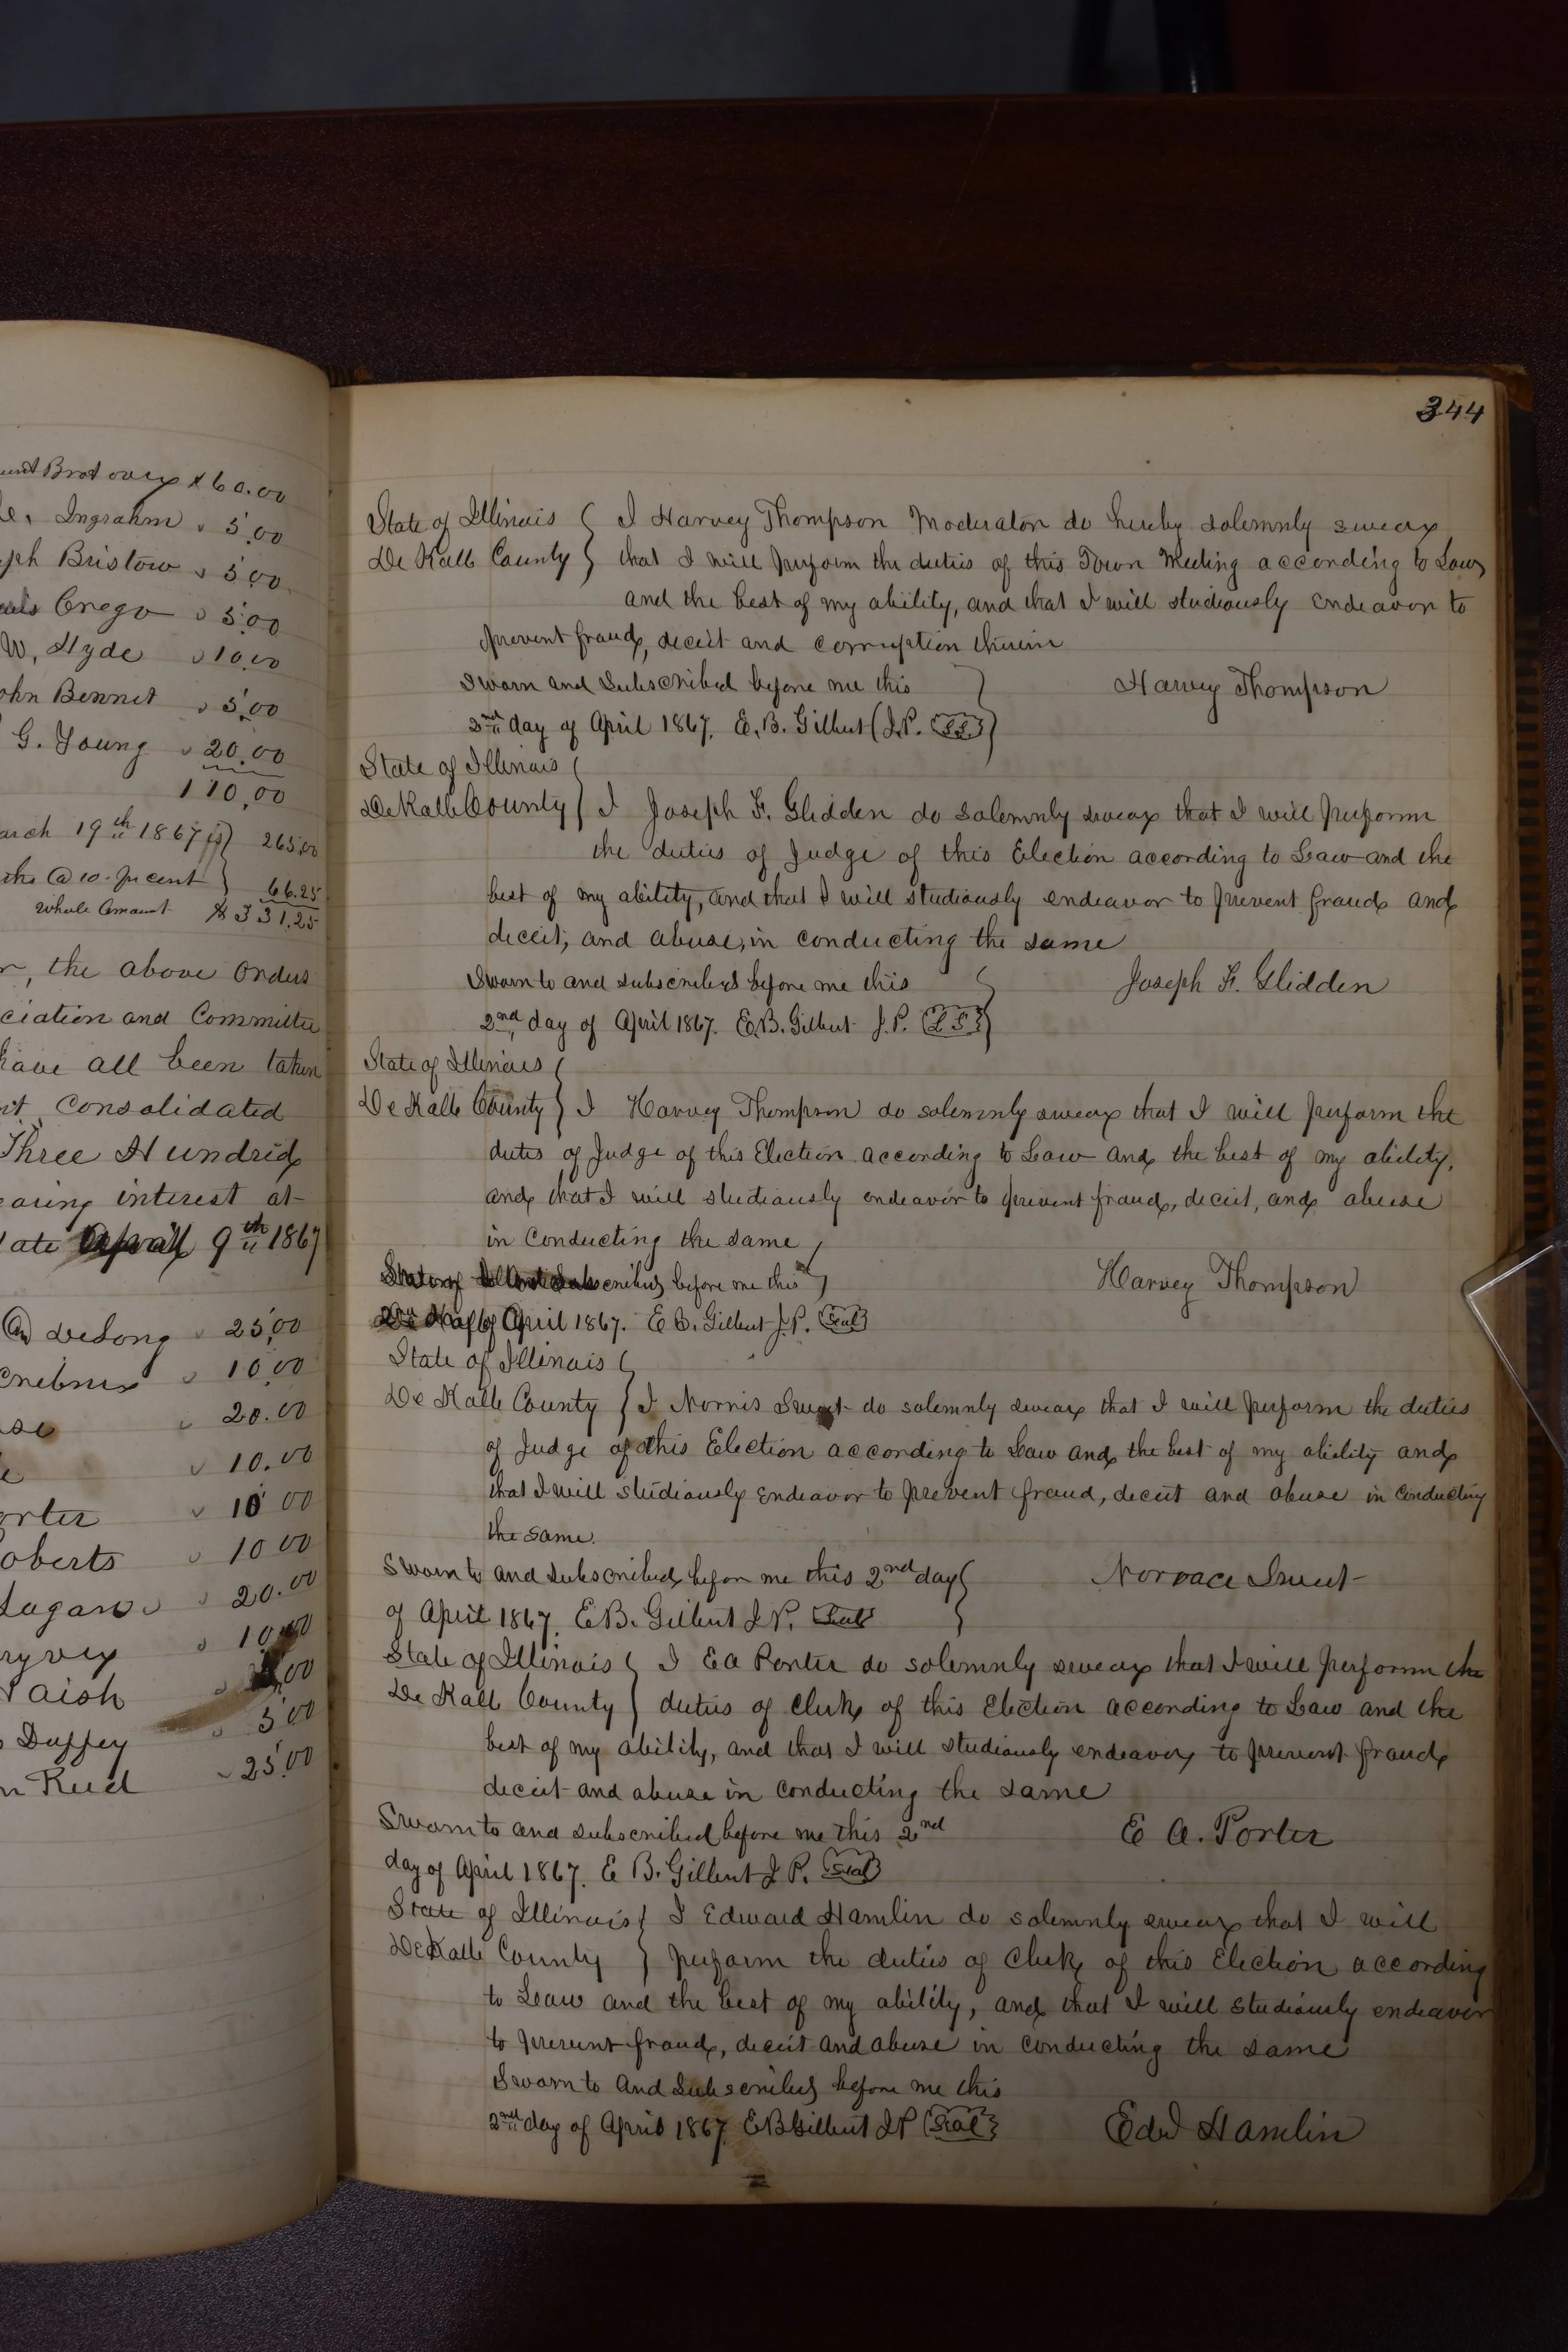 Brot over $60.00
Ingraham " 5.00
Bristow " 5.00
Crego " 5.00
W. Hyde " 10.00
John Bennet " 5.00
G. Young " 20.00
110.00
March 19th 1867 is 265.00
@ 10 per cent 66.25
Whole Amount $331.25
the above orders
ciation and Committee
have all been taken
Consolidated
Three Hundred
interest at
April 9th 1867
DeLong " 25.00
" 10.00
" 20.00
" 10.00
orter " 10 00
oberts " 10 00
Lagan " 20.00
" 10.00
aish " 00
Duffey " 5 00
Reed " 25.00
344
State of Illinois I Harvey Thompson Moderator do hereby solemnly swear
De Kalb County that I will perform the duties of this Town Meeting according to Law
and the best of my ability, and that I will studiously endeavor to
prevent fraud, deceit and corruption therein
Sworn and Subscribed before me this Harvey Thompson
2nd day of April 1867. E. B. Gilbert J.P. L.S.
State of Illinois
De Kalb County I Joseph F. Glidden do solemnly swear that I will perform
the duties of Judge of this Election according to Law and the
best of my ability, and that I will studiously endeavor to prevent fraud and
deceit, and abuse, in conducting the same
Sworn to and subscribed before me this Joseph F. Glidden
2nd day of April 1867. E. B. Gilbert J.P. L S
State of Illinois
De Kalb County I Harvey Thompson do solemnly swear that I will perform the
duties of Judge of this Election according to Law and the best of my ability,
and that I will studiously endeavor to prevent fraud, deceit, and abuse
in conducting the same
Subscribed before me this Harvey Thompson
of April 1867. E B. Gilbert J.P. Seal
State of Illinois
De Kalb County I Norris Sweet do solemnly swear that I will perform the duties
of Judge of this Election according to Law and the best of my ability and
that I will studiously endeavor to prevent fraud, deceit and abuse in conducting
the same.
Sworn to and subscribed before me this 2nd day Norrace Sweet
of April 1867. E B. Gilbert J P. Seal
State of Illinois I E A Porter do solemnly swear that I will perform the
De Kalb County duties of Clerk of this Election according to Law and the
best of my ability, and that I will studiously endeavor to prevent fraud
deceit and abuse in conducting the same
Sworn to and subscribed before me this 2nd E A. Porter
day of April 1867. E B. Gilbert J P. Seal
State of Illinois I Edward Hamlin do solemnly swear that I will
De Kalb County perform the duties of Clerk of this Election according
to Law and the best of my ability, and that I will studiously endeavor
to prevent fraud, deceit and abuse in conducting the same
Sworn to And Subscribed before me this
2nd day of April 1867 E B Gilbert J P Seal Edwd Hamlin